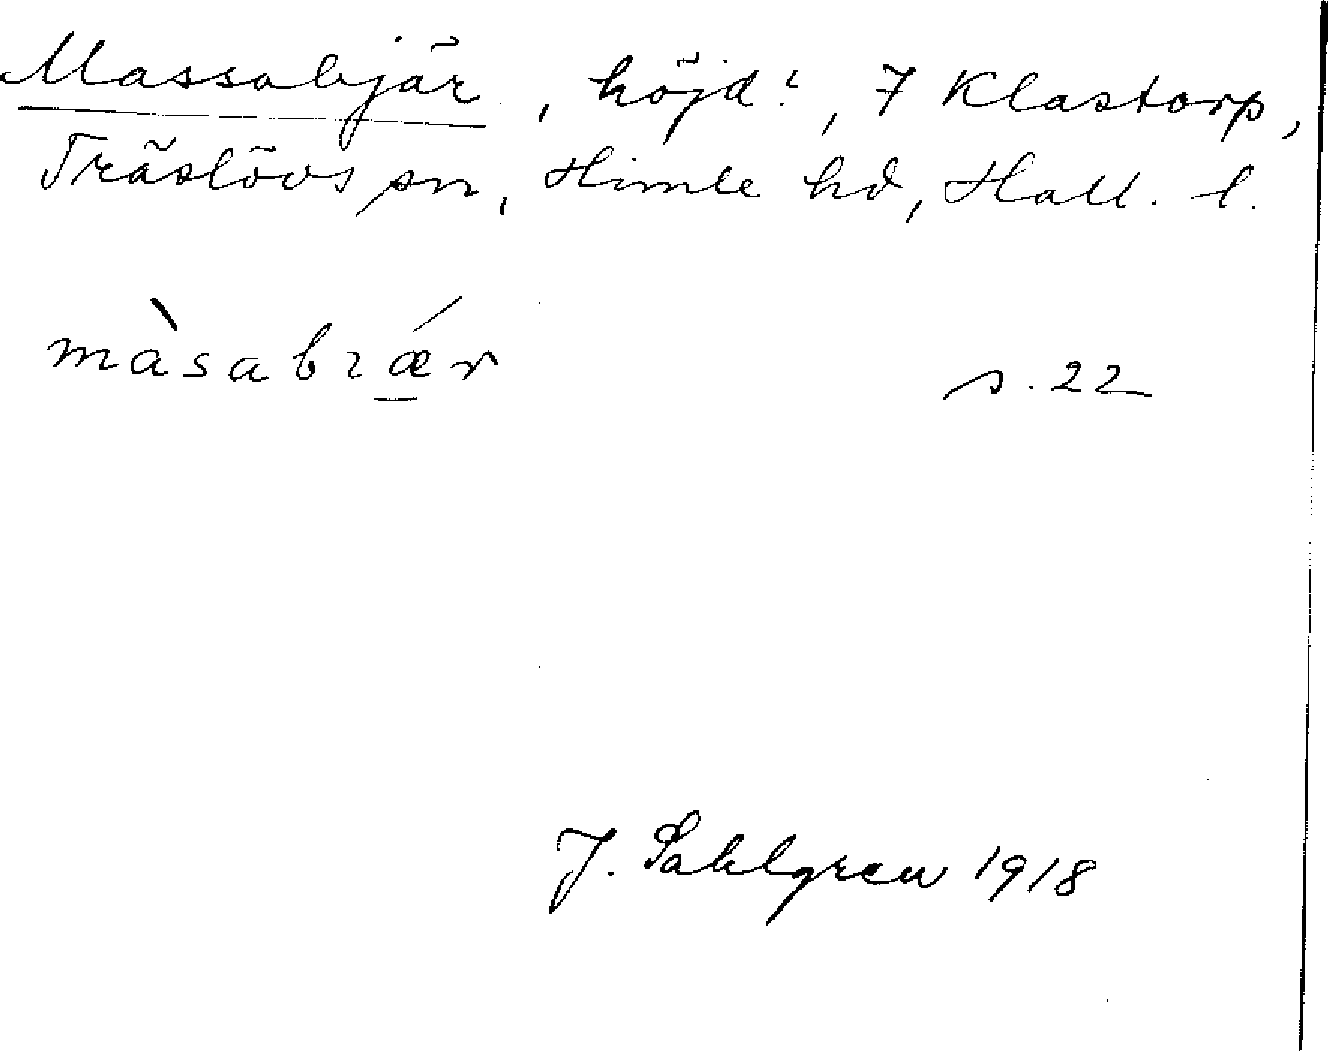 Massabjär, höjd?, 7 Klastorp,
Träslövs sn, Himle hd, Hall. l.
màsabɿǽr
s. 22
J. Sahlgren 1918